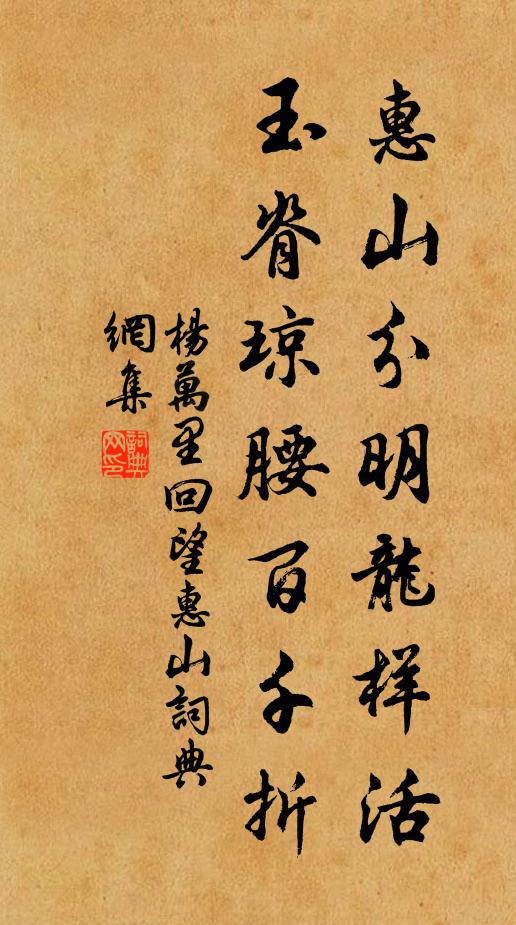 惠山分明龍样活
玉脊琼腰百千折
楊萬里回望惠山詞典
網集
詞典
网印